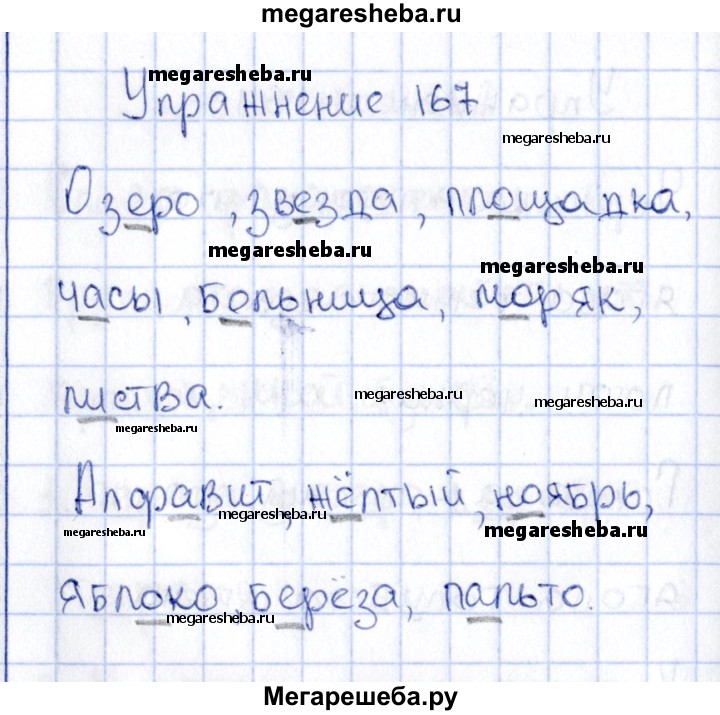 megaresheba.ru
megaresheba.ru
Упражнение 167
megaresheba.ru
Озеро, звезда, площадка,
megaresheba.ru
megaresheba.ru
часы, больница, моряк,
листва.
megaresheba.ru
megaresheba.ru
megaresheba.ru
Алфавит, жёлтый, ноябрь,
megaresheba.ru
megaresheba.ru
megaresheba.ru
яблоко, берёза, пальто.
megaresheba.ru
Мегарешеба.ру